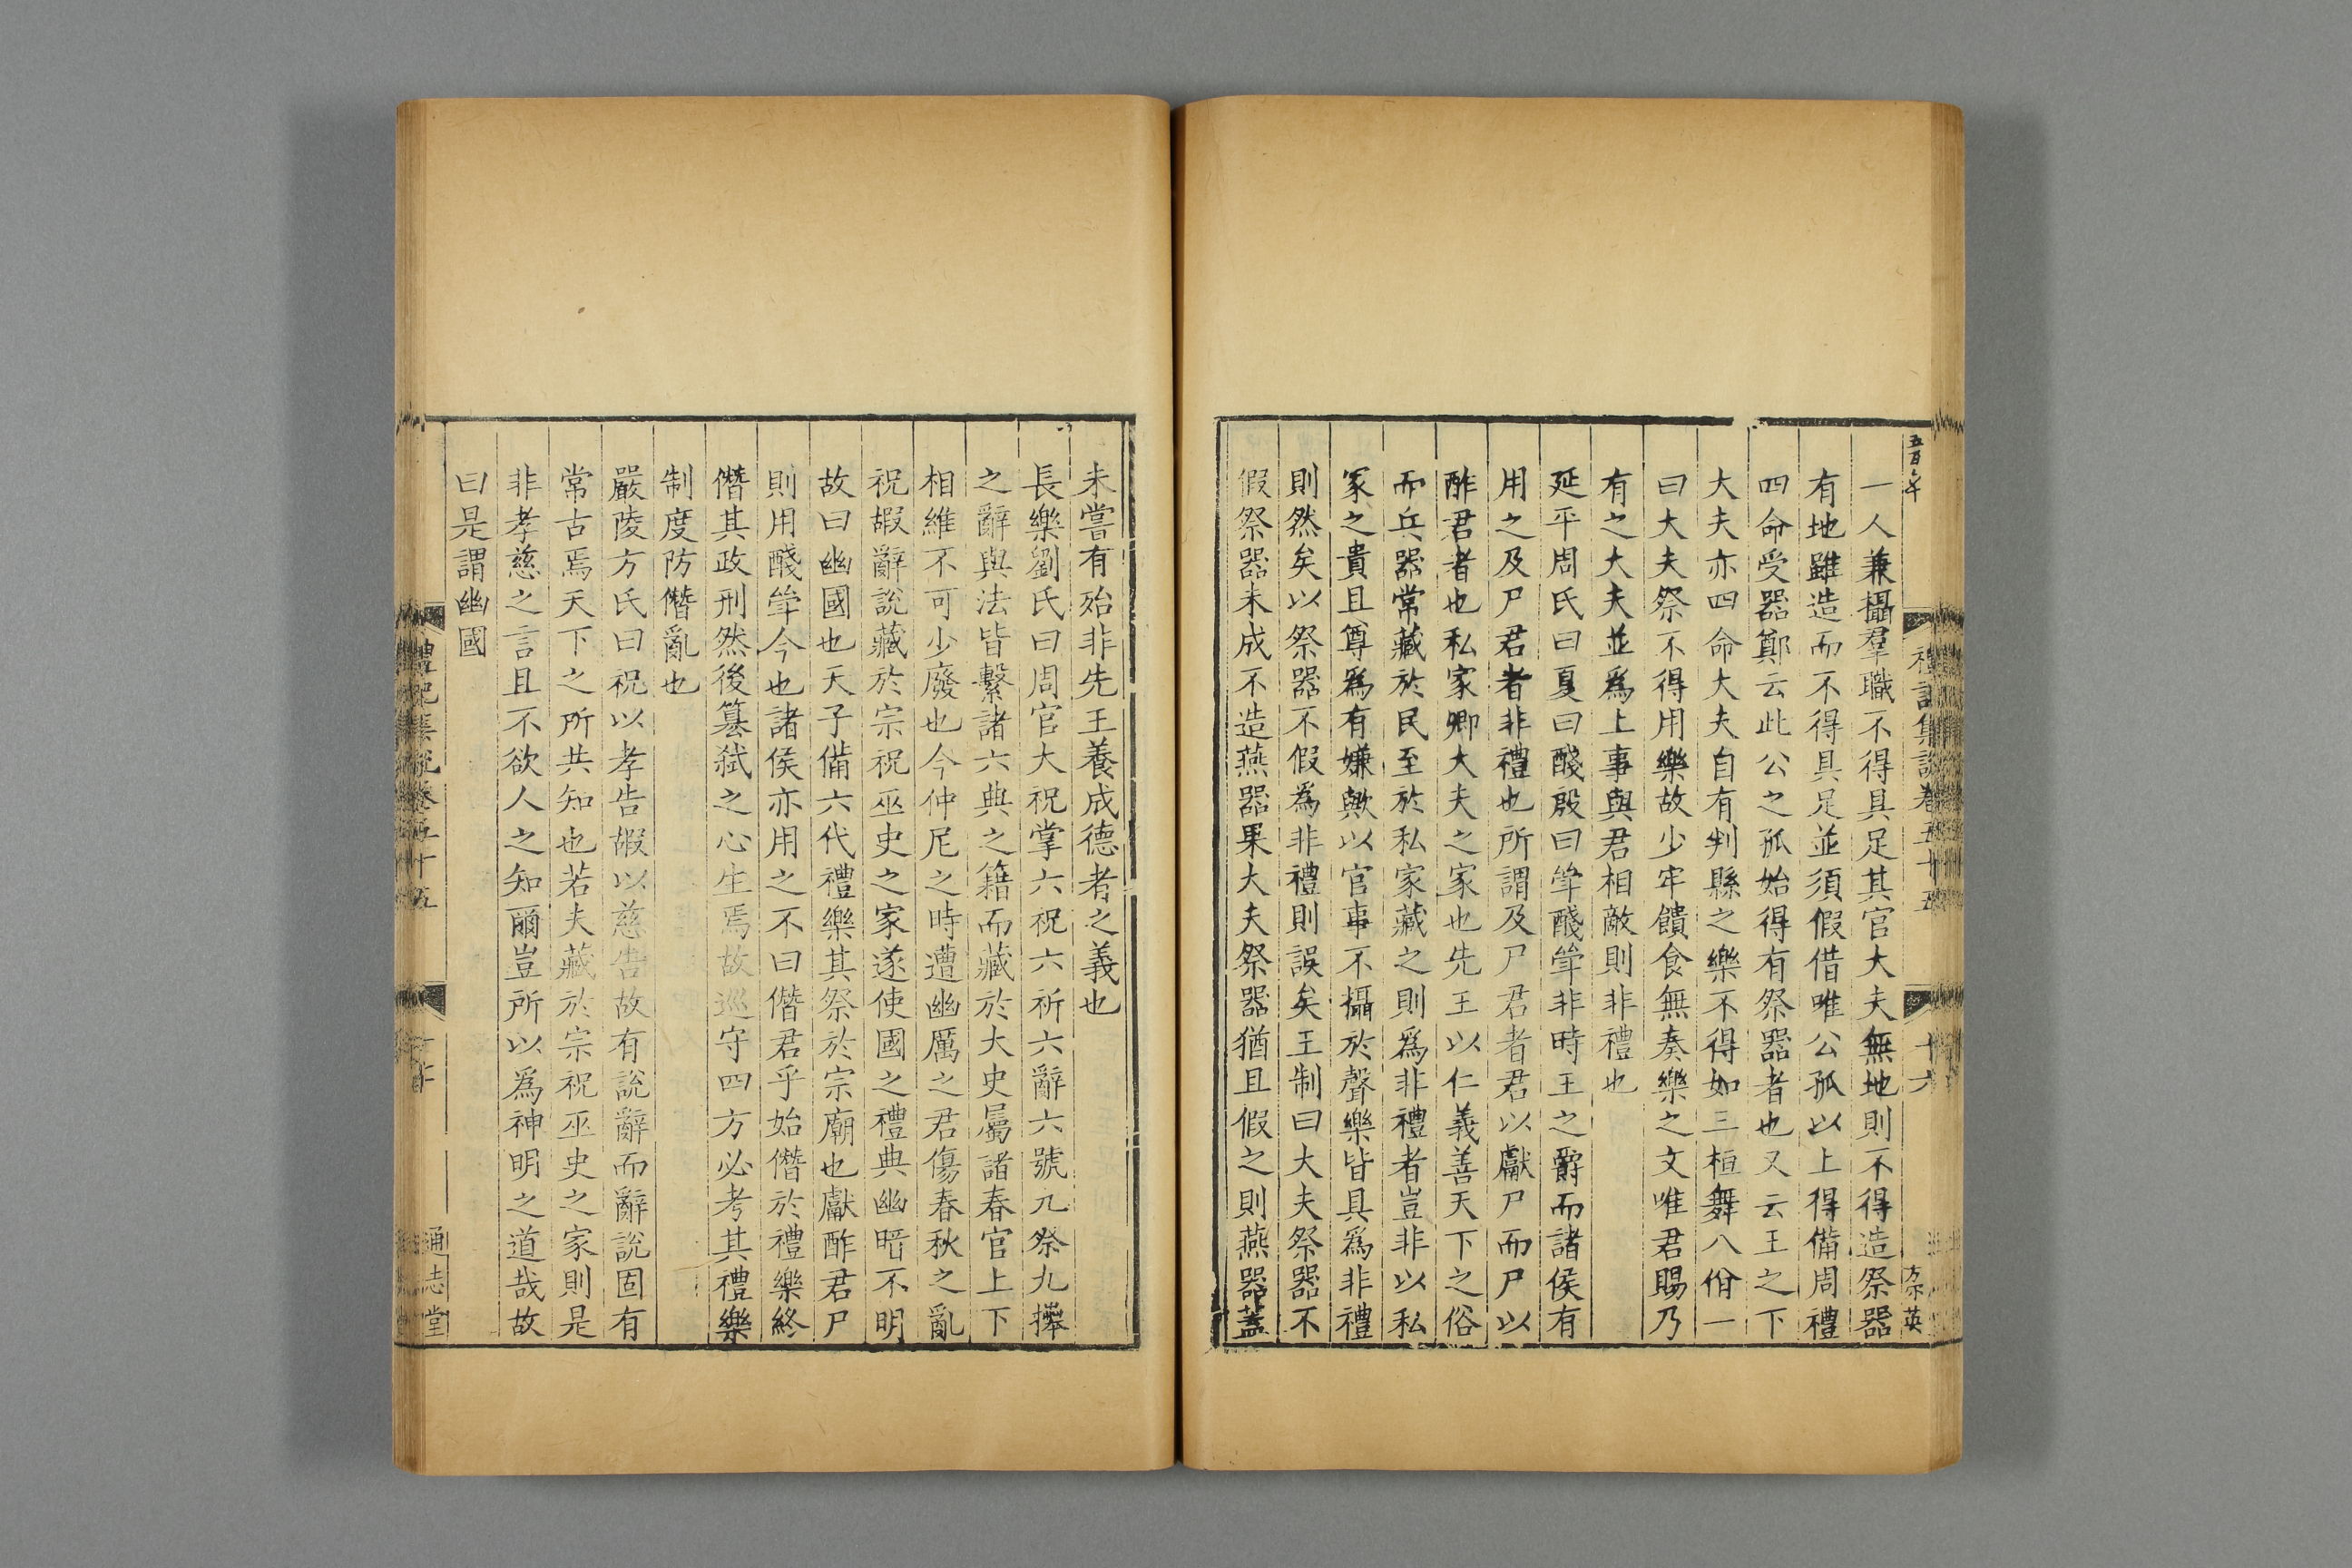 禮記集說卷五十五
十六
一人兼攝羣職不得具足其官大夫無地則不得造祭器
有地雖造而不得具足並須假借唯公孤以上得備周禮
四命受器鄭云此公之孤始得有祭器者也又云王之下
大夫亦四命大夫自有判縣之樂不得如三桓舞八佾一
曰大夫祭不得用樂故少牢饋食無奏樂之文唯君賜乃
有之大夫並爲上事與君相敵則非禮也
延平周氏曰夏曰醆殷曰斝醆斝非時王之爵而諸侯有
用之及尸君者非禮也所謂及尸君者君以獻尸而尸以
酢君者也私家卿大夫之家也先王以仁義善天下之俗
而兵器常藏於民至於私家藏之則爲非禮者豈非以私
家之貴且尊爲有嫌歟以官事不攝於聲樂皆具爲非禮
則然矣以祭器不假爲非禮則誤矣王制曰大夫祭器不
假祭器未成不造燕器果大夫祭器猶且假之則燕器蓋
未嘗有殆非先王養成德者之義也
長樂劉氏曰周官大祝掌六祝六祈六辭六號九祭九㨽
之辭與法皆繫諸六典之籍而藏於大史屬諸春官上下
相維不可少廢也今仲尼之時遭幽厲之君傷春秋之亂
祝嘏辭說藏於宗祝巫史之家遂使國之禮典幽暗不明
故曰幽國也天子備六代禮樂其祭於宗廟也獻酢君尸
則用醆斝今也諸侯亦用之不曰僭君乎始僭於禮樂終
僭其政刑然後篡弒之心生焉故巡守四方必考其禮樂
制度防僭亂也
嚴陵方氏曰祝以孝告嘏以慈告故有說辭而辭說固有
常古焉天下之所共知也若夫藏於宗祝巫史之家則是
非孝慈之言且不欲人之知爾豈所以爲神明之道哉故
曰是謂幽國
禮記集說卷五十五
通志堂